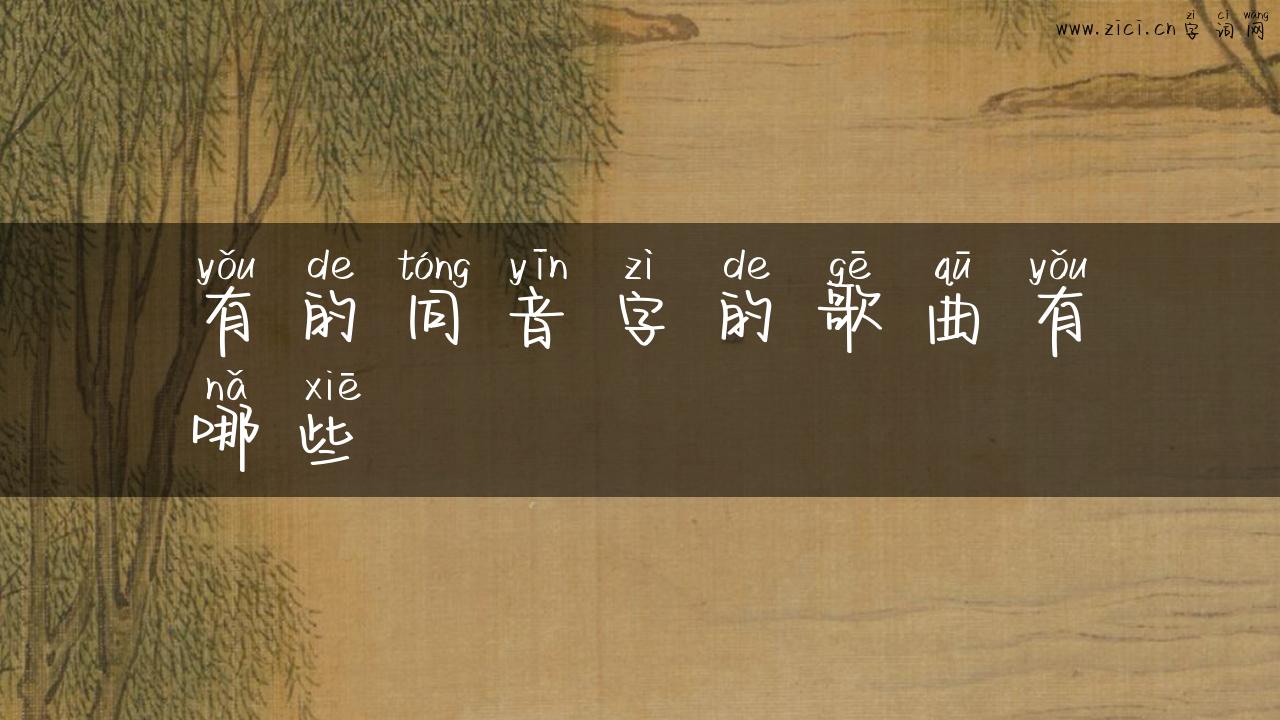 zì cí wǎng
www.zici.cn 字词网
yǒu de tóng yīn zì de gē qū yǒu
有的同音字的歌曲有
nǎ xiē
哪些